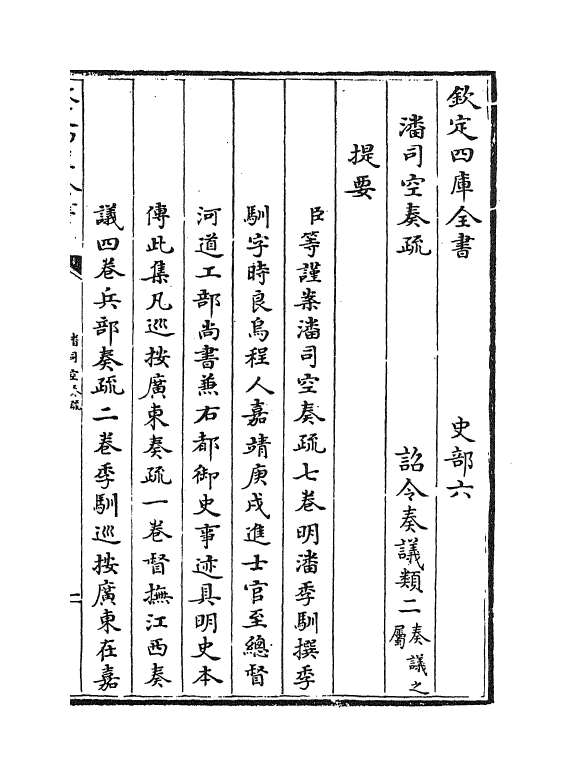 欽定四庫全書　史部六
潘司空奏疏　詔令奏議類二奏議之屬
提要
臣等謹案潘司空奏疏七卷明潘季馴撰季
馴字時良烏程人嘉靖庚戌進士官至總督
河道工部尚書兼右都御史事迹具明史本
傳此集凡巡按廣東奏疏一卷督撫江西奏
議四卷兵部奏疏二卷季馴巡按廣東在嘉
潘司空奏疏